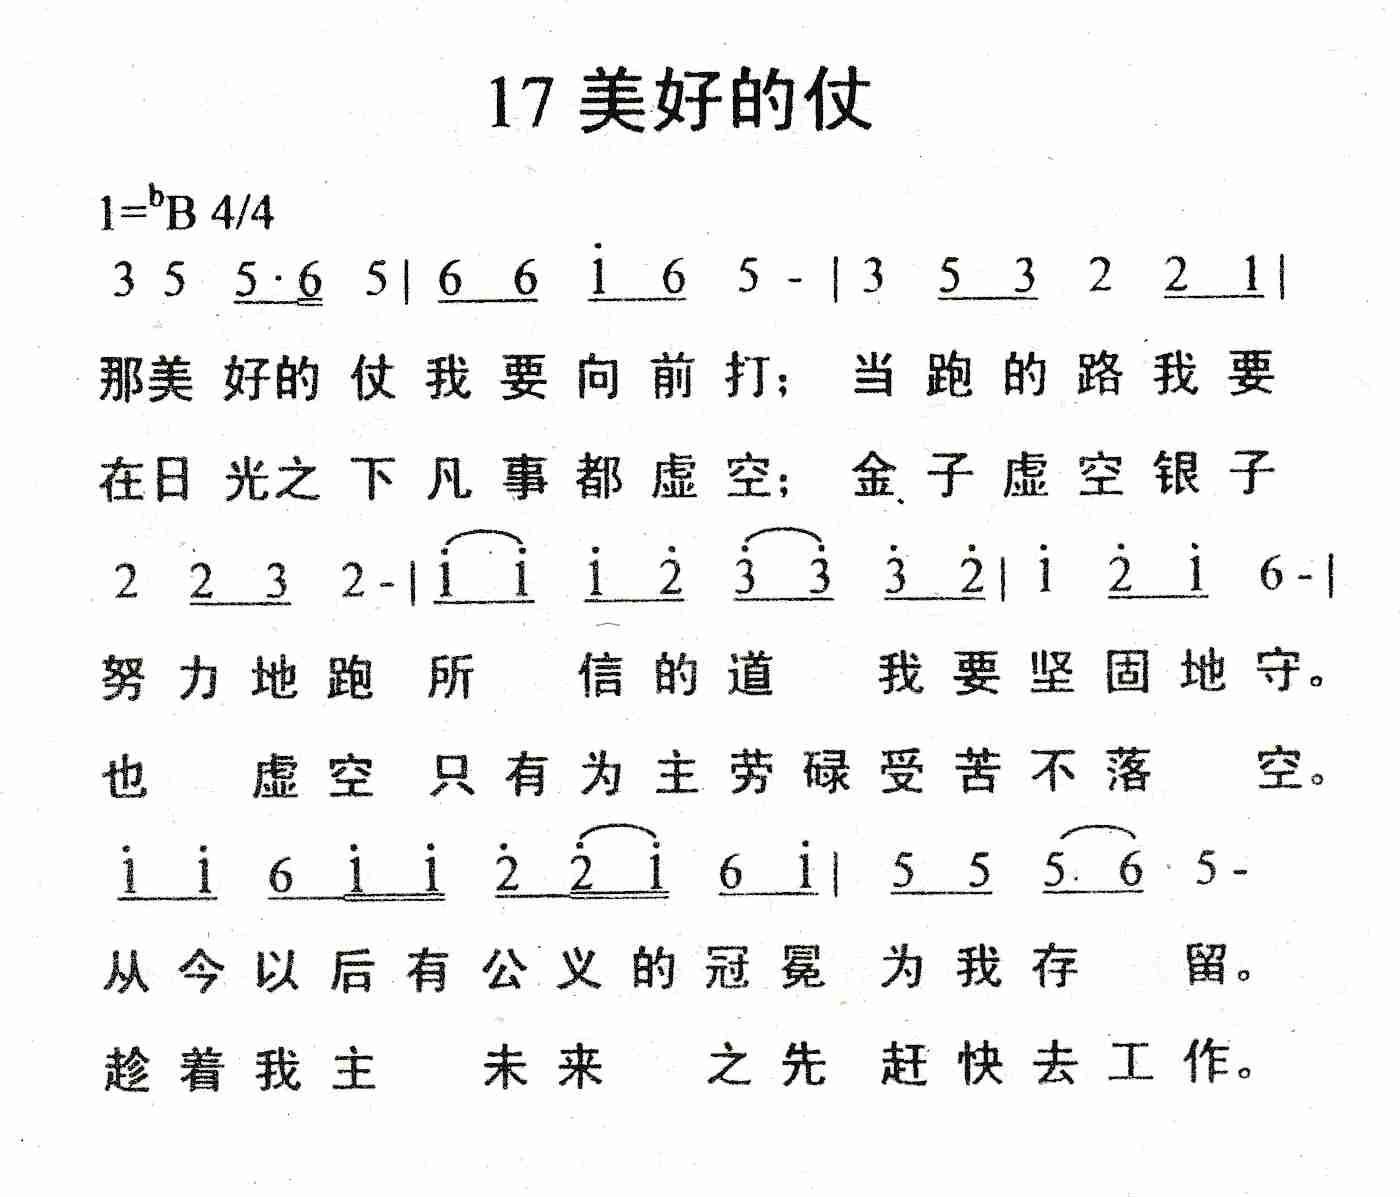 17 美好的仗
1=ᵇB 4/4
3 5 5·6 5 | 6 6 i 6 5 - | 3 5 3 2 2 1 |
那美 好的 仗 我 要 向 前 打； 当 跑 的 路 我 要
在日 光之 下 凡 事 都 虚 空； 金、子 虚 空 银 子
2 2 3 2 - | i̇ i̇ i̇ 2̇ 3̇ 3̇ 3̇ 2̇ | i̇ 2̇ i̇ 6 - |
努 力 地 跑 所 信 的 道 我 要 坚 固 地 守。
也 虚 空 只 有 为 主 劳 碌 受 苦 不 落 空。
i̇ i̇ 6 i̇ i̇ 2̇ 2̇ i̇ 6 i̇ | 5 5 5· 6 5 -
从 今 以 后 有 公 义 的 冠 冕 为 我 存 留。
趁 着 我 主 未 来 之 先 赶 快 去 工 作。